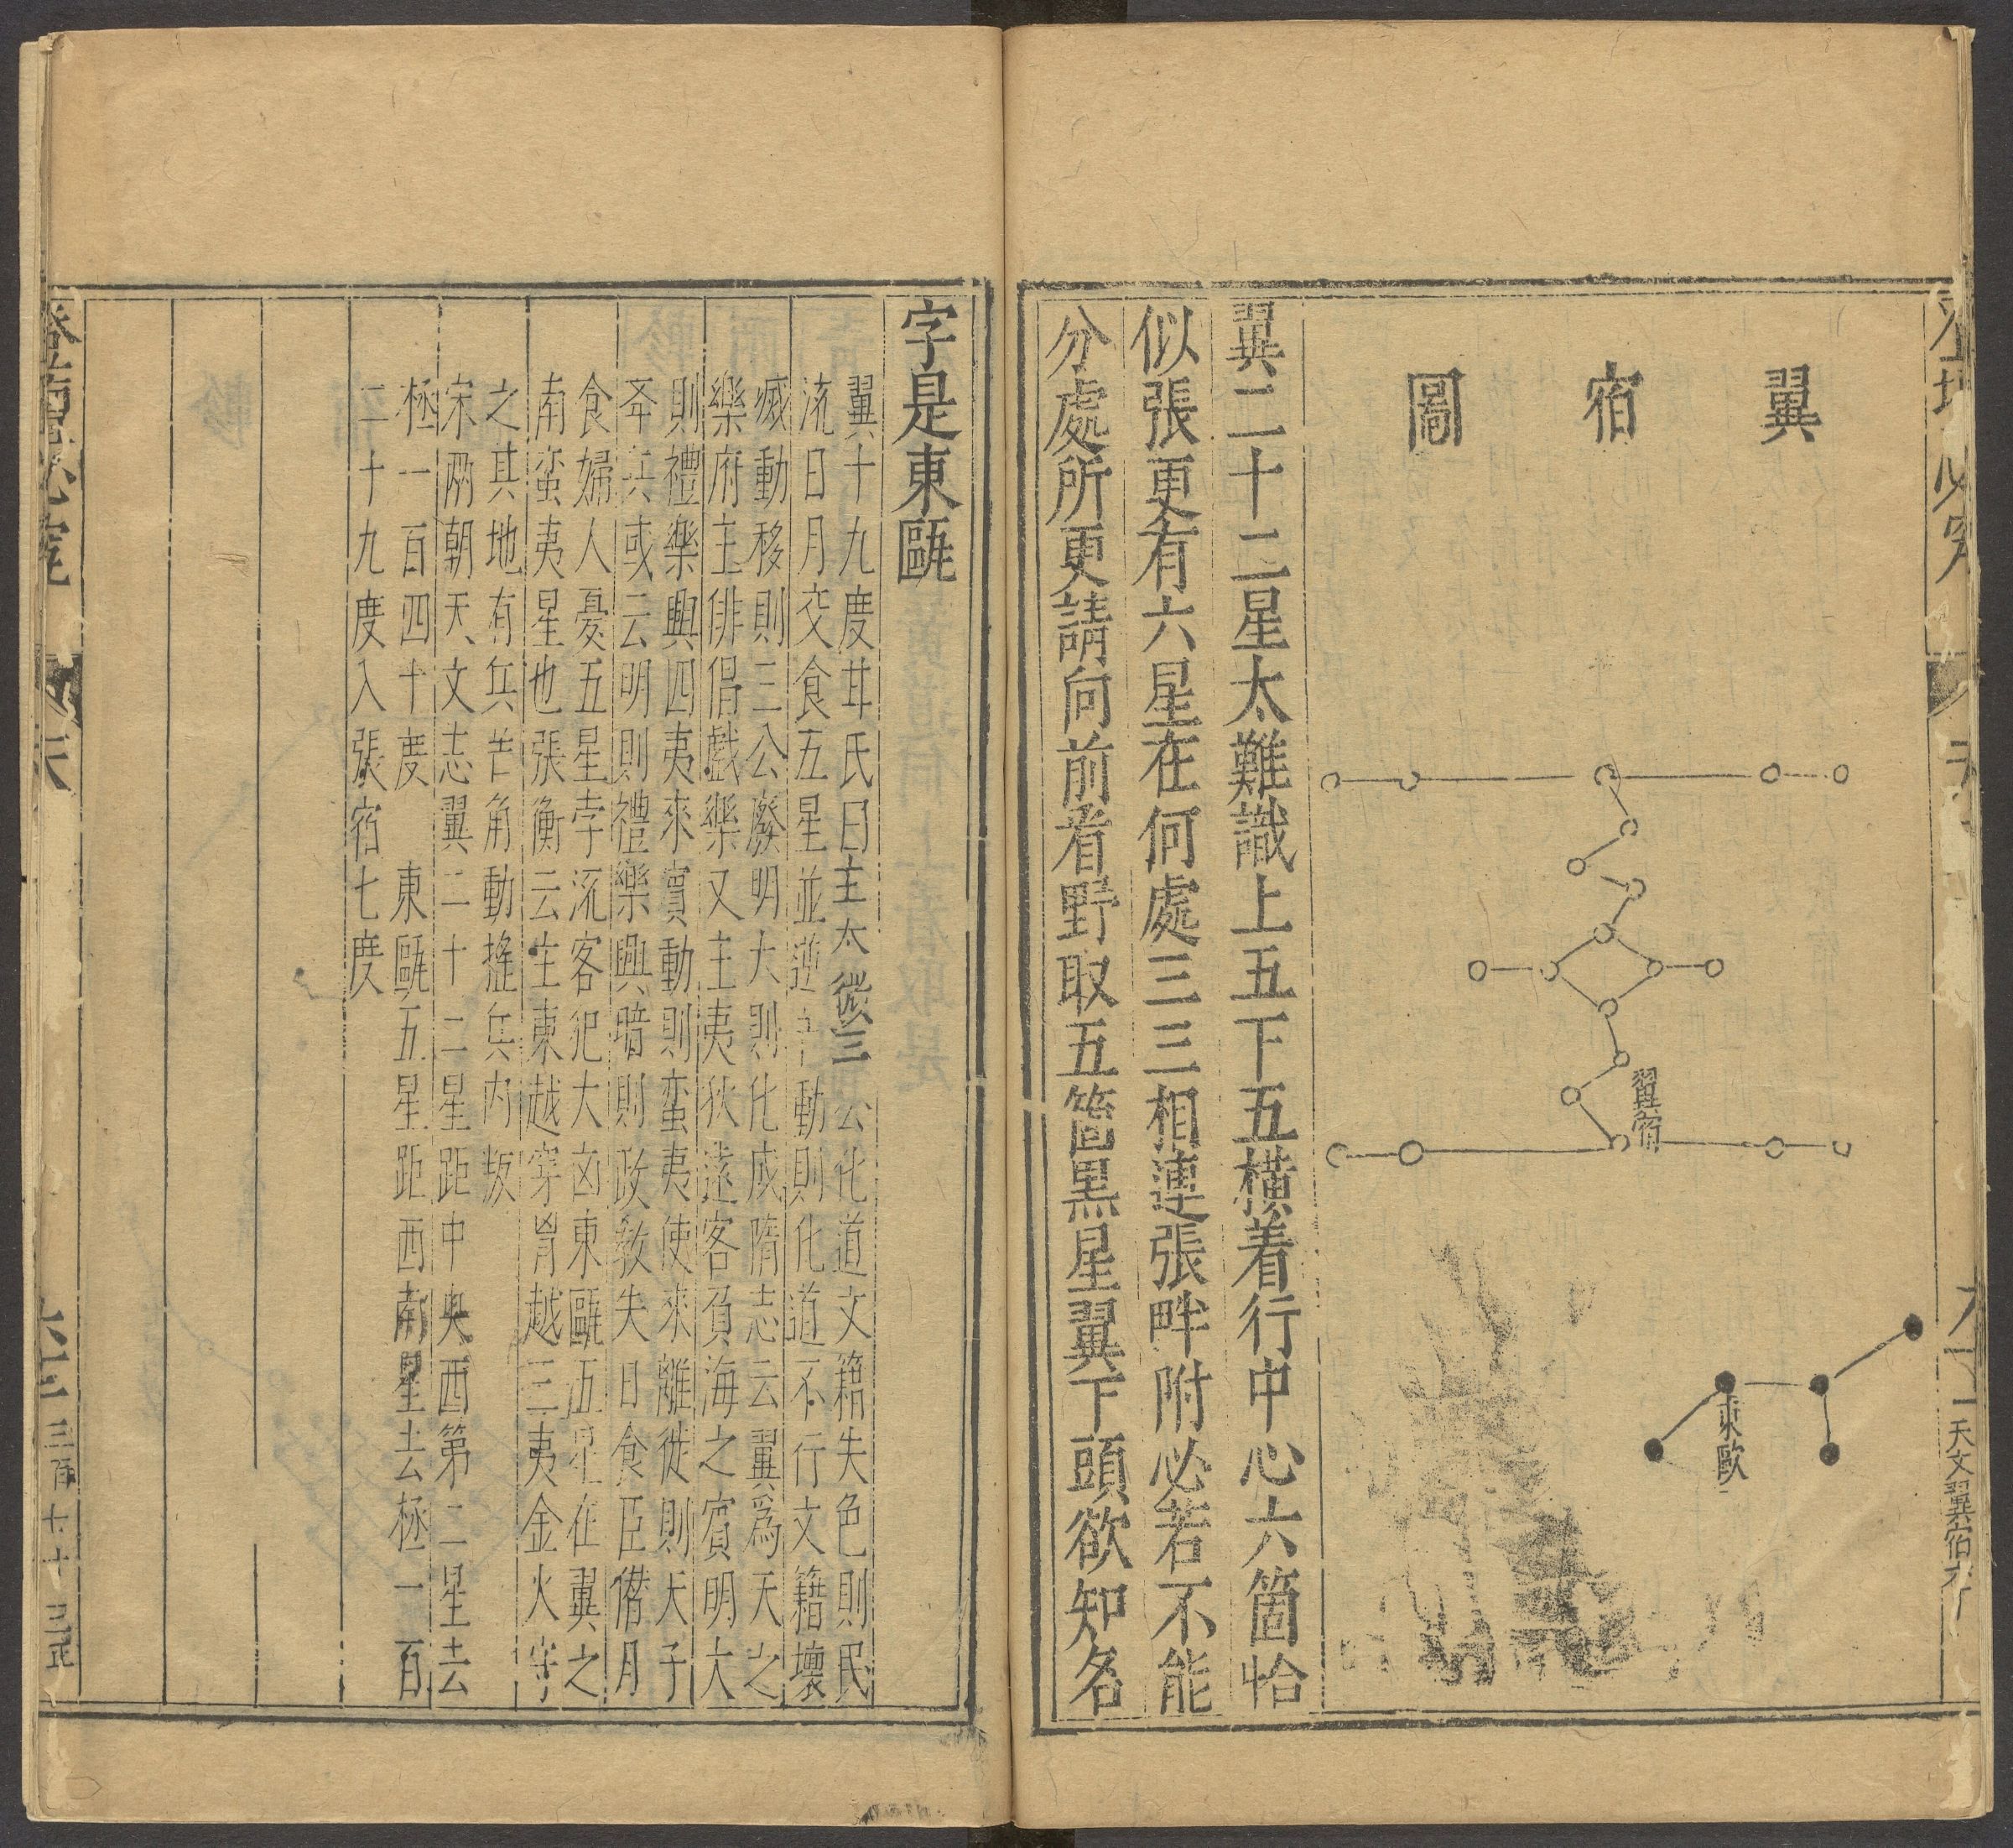 翼宿圖
翼宿
東歐
翼二十二星太難識上五下五橫着行中心六箇恰
似張更有六星在何處三三相連張畔附必若不能
分處所更請向前看野取五箇黑星翼下頭欲知名
天文翼宿
字是東甌
翼十九度甘氏曰主太微三公化道文籍失色則民
流日月交食五星並逆動則化道不行文籍壞
滅動移則三公廢明大則化成隋志云翼爲天之
樂府主俳倡戲樂又主夷狄遠客負海之賓明大
則禮樂興四夷來賓動則蛮夷使來離徙則天子
兵或云明則禮樂興暗則政教失日食臣僭月
食婦人憂五星孛流客犯大凶東甌五星在翼之
南蛮夷星也張衡云主東越穿胷越三夷金火守
之其地有兵芒角動揺兵內叛
宋兩朝天文志翼二十二星距中央西第二星去
極一百四十度 東甌五星距西南星去極一百
二十九度入張宿七度
三百七十三